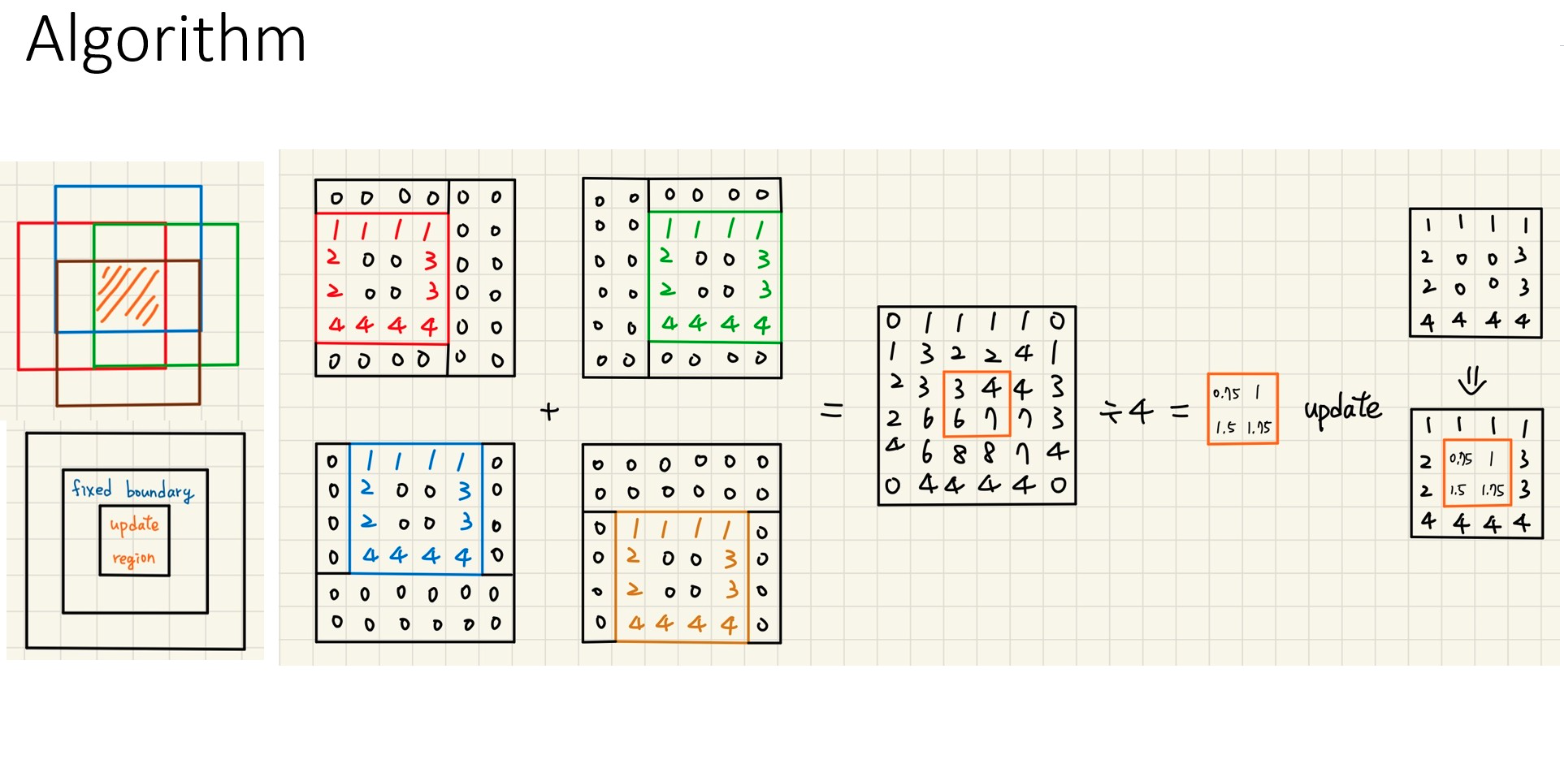 Algorithm
fixed boundary
update
region
0 0 0 0 0 0
1 1 1 1 0 0
2 0 0 3 0 0
2 0 0 3 0 0
4 4 4 4 0 0
0 0 0 0 0 0
0 0 0 0 0 0
0 0 1 1 1 1
0 0 2 0 0 3
0 0 2 0 0 3
0 0 4 4 4 4
0 0 0 0 0 0
+
0 1 1 1 1 0
0 2 0 0 3 0
0 2 0 0 3 0
0 4 4 4 4 0
0 0 0 0 0 0
0 0 0 0 0 0
0 0 0 0 0 0
0 0 0 0 0 0
0 1 1 1 1 0
0 2 0 0 3 0
0 2 0 0 3 0
0 4 4 4 4 0
=
0 1 1 1 1 0
1 3 2 2 4 1
2 3 3 4 4 3
2 6 6 7 7 3
4 6 8 8 7 4
0 4 4 4 4 0
÷4 =
0.75 1
1.5 1.75
update
1 1 1 1
2 0 0 3
2 0 0 3
4 4 4 4
⇓
1 1 1 1
2 0.75 1 3
2 1.5 1.75 3
4 4 4 4